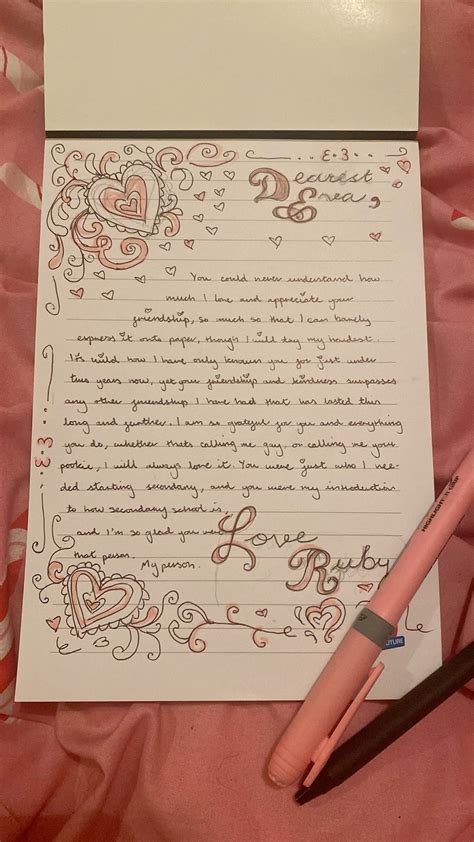 Ɛ·3
Dearest
Enea,
You could never understand how
much I love and appreciate your
friendship, so much so that I can barely
express it onto paper, though I will day my hardest.
It's wild how I have only known you for just under
two years now, yet your friendship and kindness surpasses
any other friendship I have had that has lasted this
long and further. I am so grateful for you and everything
you do, whether thats calling me gay, or calling me your
pookie, I will always love it. You were just who I nee-
ded starting secondary, and you were my introduction
to how secondary school is,
and I'm so glad you were
that person.
My person.
Love
Ruby
Ɛ·3
HIGHLIGHT
FUTURE